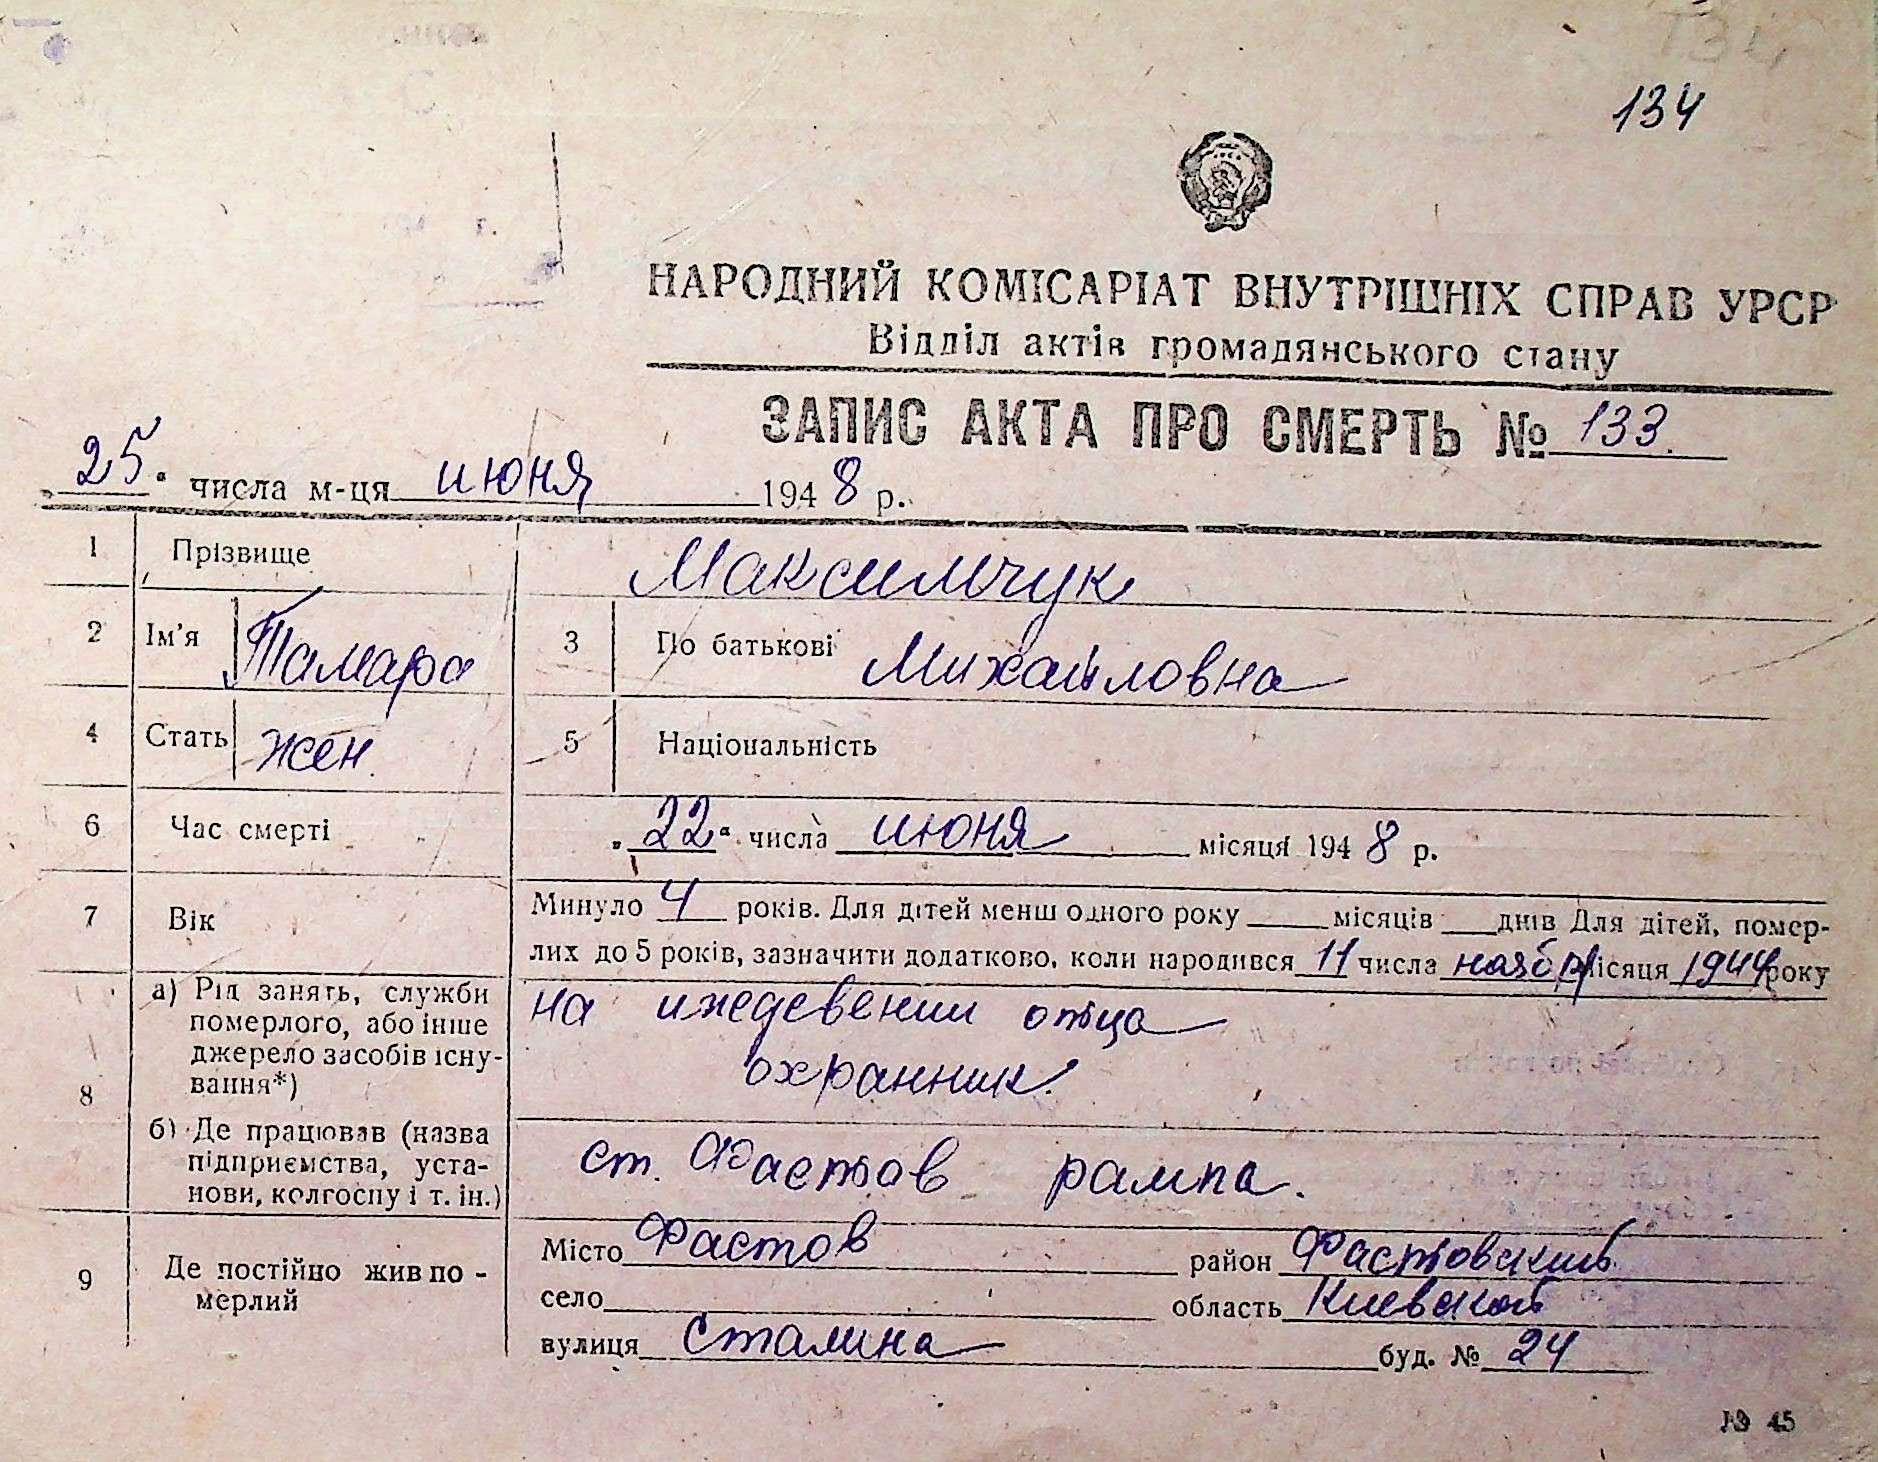 134
НАРОДНИЙ КОМІСАРІАТ ВНУТРІШНІХ СПРАВ УРСР
Відділ актів громадянського стану
ЗАПИС АКТА ПРО СМЕРТЬ № 133.
25 числа м-ця июня 1948 р.
1 Прізвище Максимчук
2 Ім'я Тамара 3 По батькові Михайловна
4 Стать жен. 5 Національність
6 Час смерті „22“ числа июня місяця 1948 р.
7 Вік Минуло 4 років. Для дітей менш одного року місяців днів Для дітей, помер-
лих до 5 років, зазначити додатково, коли народився 11 числа місяця 1944 року
8 а) Рід занять, служби
померлого, або інше
джерело засобів існу-
вання*)
на иждевении отца
охранник.
б) Де працював (назва
підприємства, уста-
нови, колгоспу і т. ін.)
ст. Фастов рампа.
9 Де постійно жив по-
мерлий
Місто Фастов район Фастовский
село область Киевской
вулиця Сталина буд. № 24
45